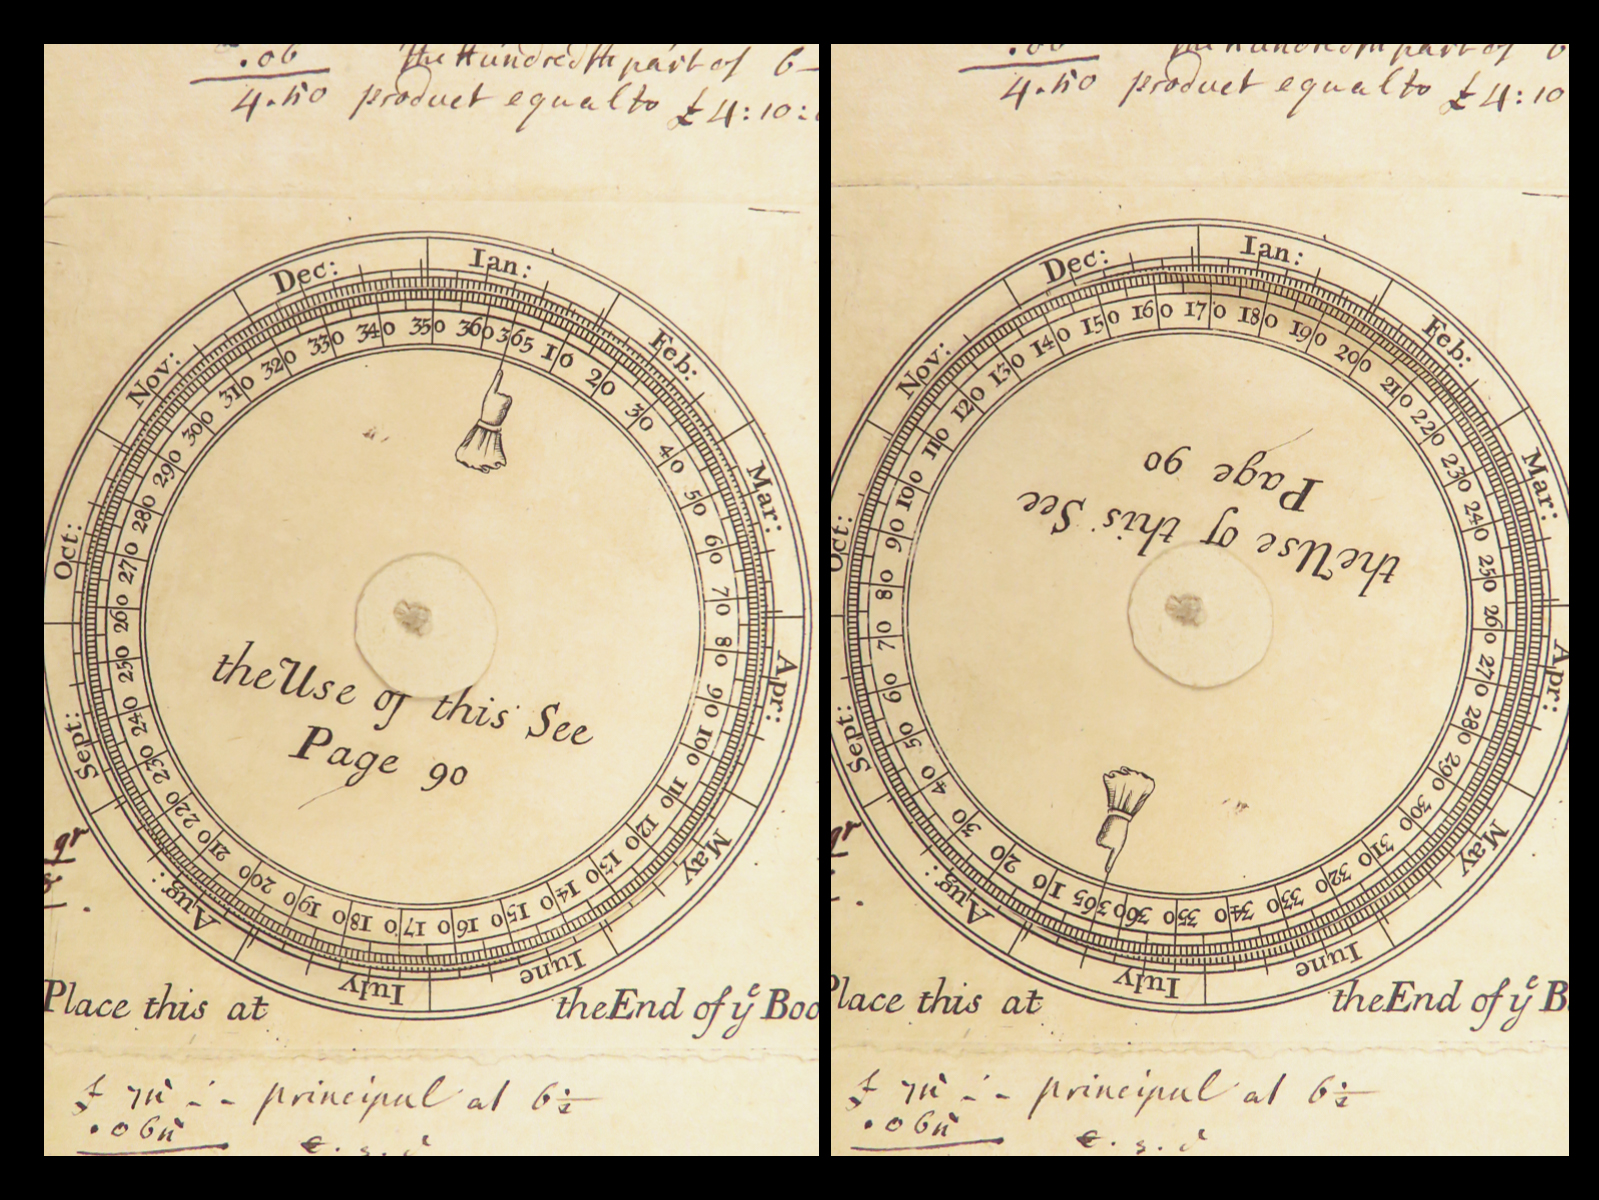 .06 the Hundredth part of 6
4.50 product equal to £4:10:
Ian:
Feb:
Mar:
Apr:
May
Iune
Iuly
Aug:
Sept:
Oct:
Nov:
Dec:
365 10 20 30 40 50 60 70 80 90 100 110 120 130 140 150 160 170 180 190 200 210 220 230 240 250 260 270 280 290 300 310 320 330 340 350 360
the Use of this See
Page 90
gr
Place this at the End of yᵉ Boo
principal at 6½
.065
.06 the Hundredth part of 6
4.50 product equal to £4:10
Ian:
Feb:
Mar:
Apr:
May
Iune
Iuly
Aug:
Sept:
Oct:
Nov:
Dec:
170 180 190 200 210 220 230 240 250 260 270 280 290 300 310 320 330 340 350 360 365 10 20 30 40 50 60 70 80 90 100 110 120 130 140 150 160
the Use of this See
Page 90
gr
Place this at the End of yᵉ B
principal at 6½
.065